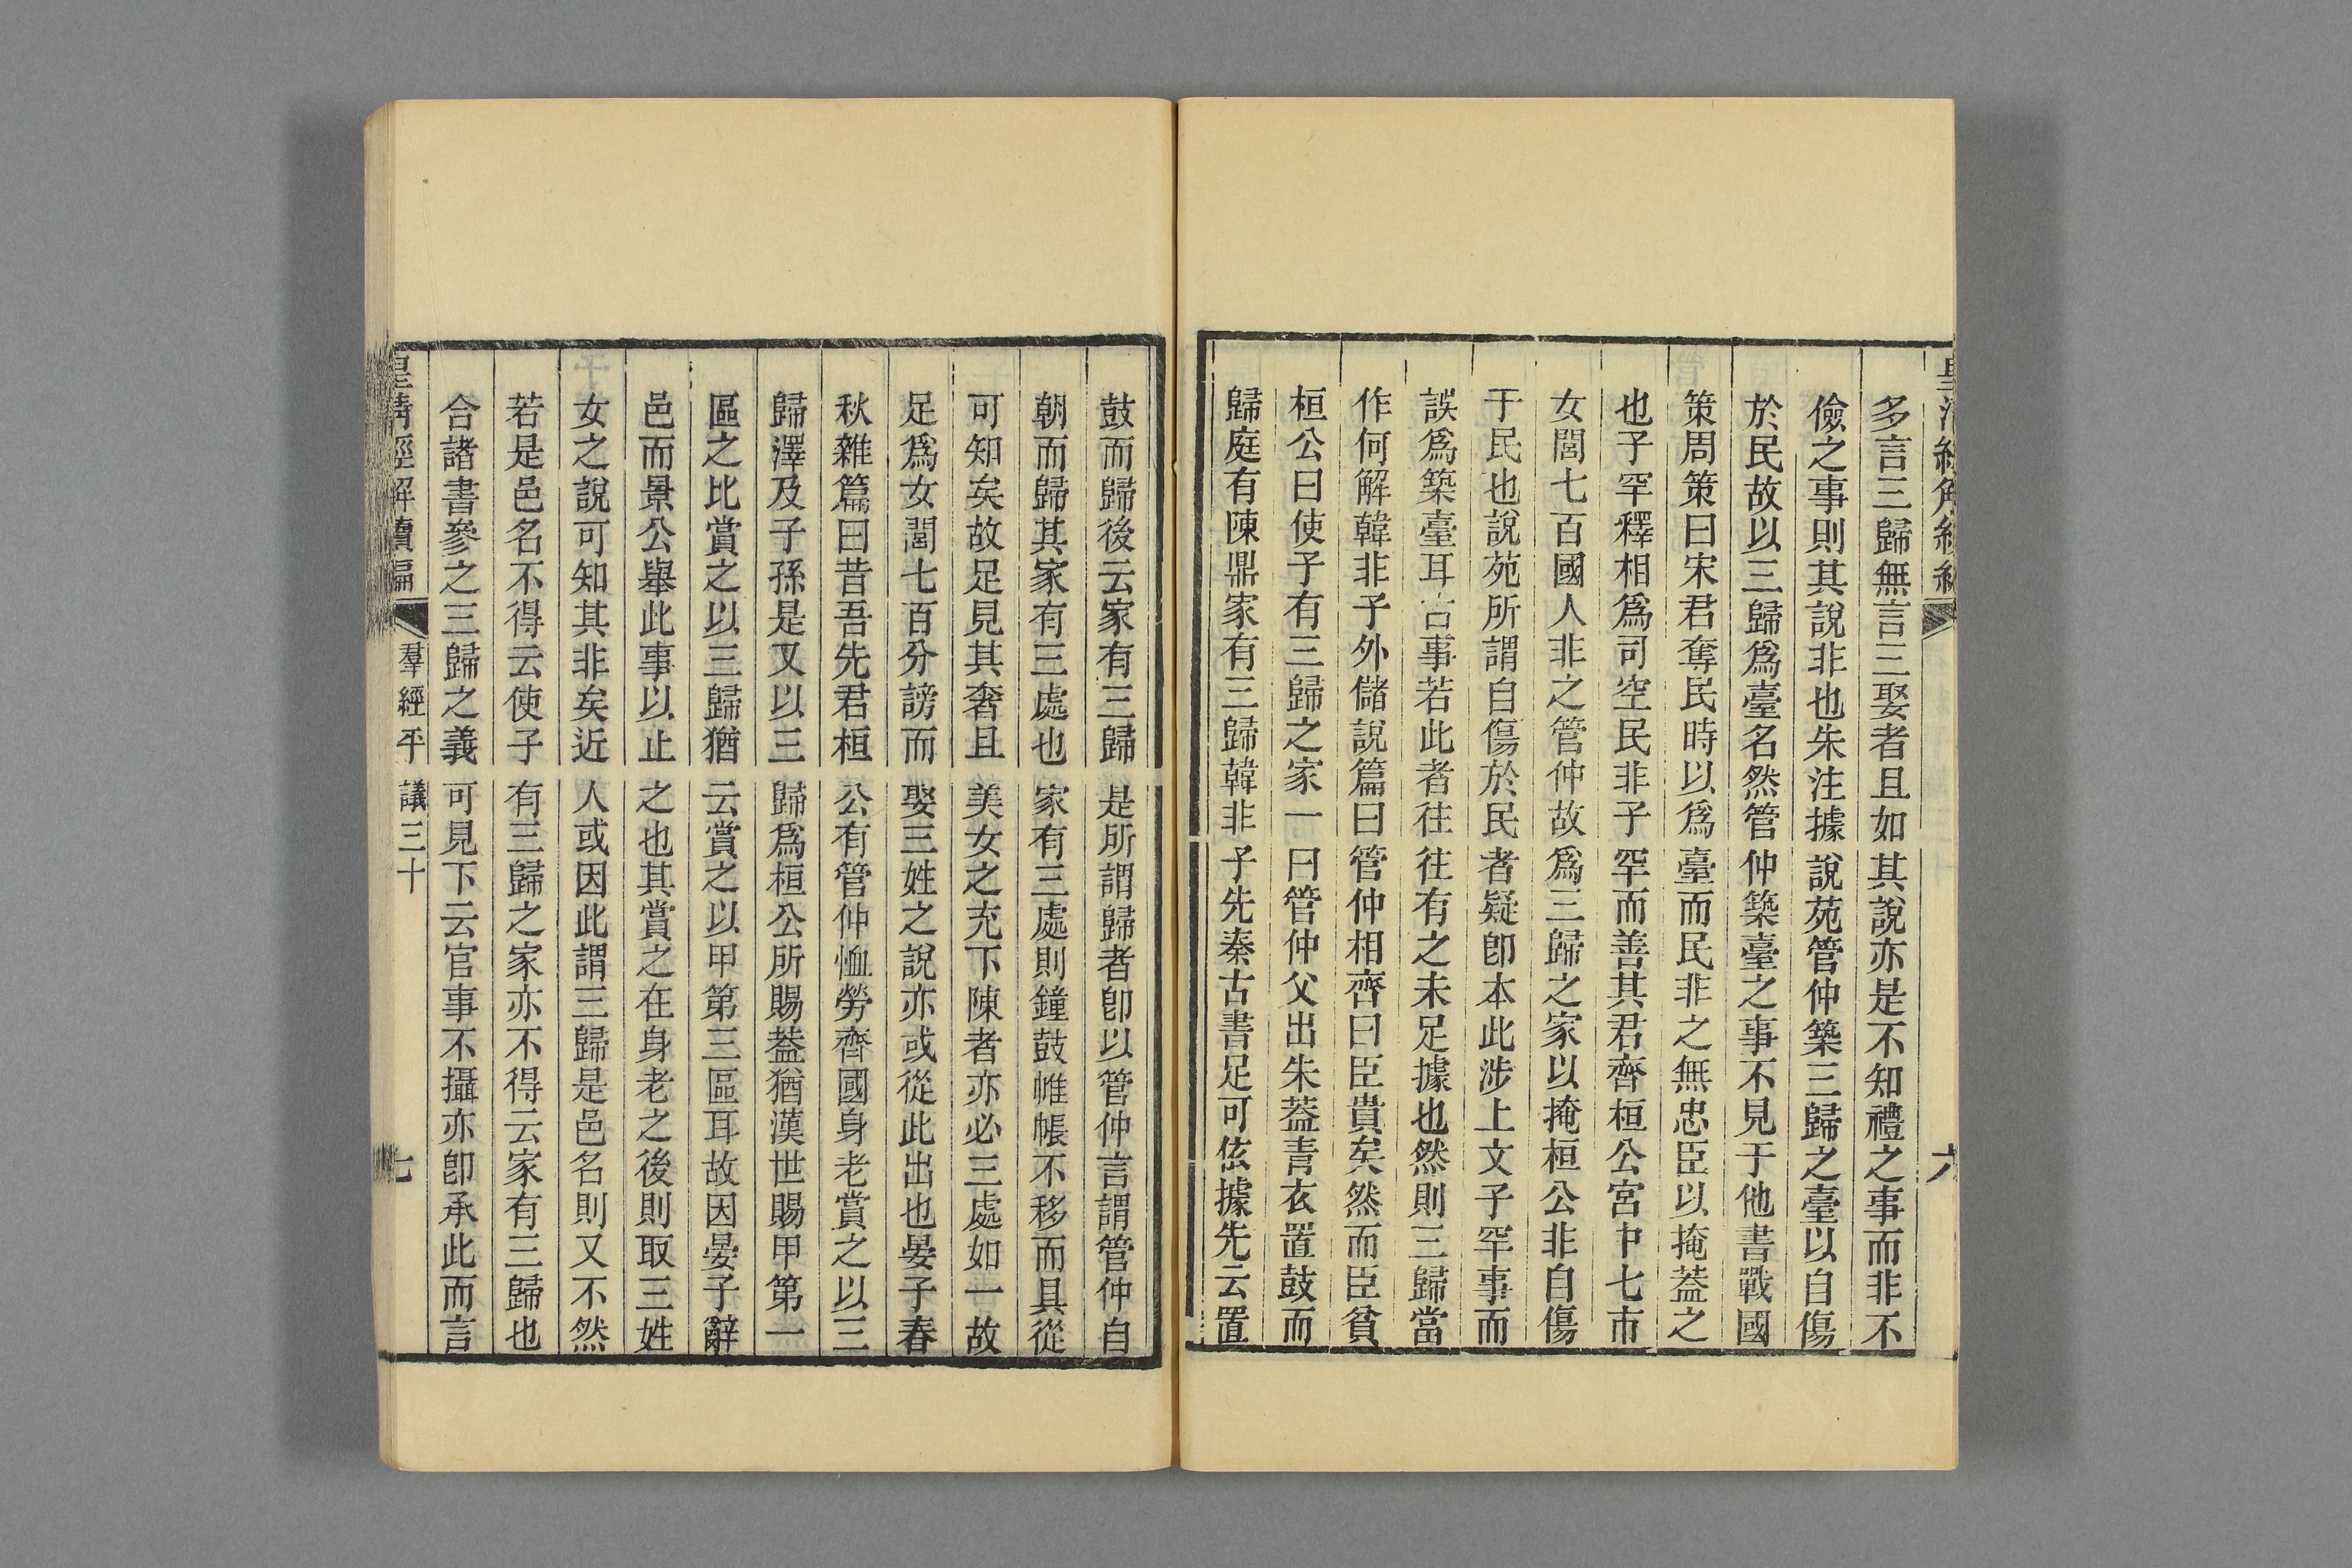 多言三歸無言三娶者且如其說亦是不知禮之事而非不
儉之事則其說非也朱注據說苑管仲築三歸之臺以自傷
於民故以三歸爲臺名然管仲築臺之事不見于他書戰國
策周策曰宋君奪民時以爲臺而民非之無忠臣以掩葢之
也子罕釋相爲司空民非子罕而善其君齊桓公宮中七市
女閭七百國人非之管仲故爲三歸之家以掩桓公非自傷
于民也說苑所謂自傷於民者疑卽本此涉上文子罕事而
誤爲築臺耳古事若此者往往有之未足據也然則三歸當
作何解韓非子外儲說篇曰管仲相齊曰臣貴矣然而臣貧
桓公曰使子有三歸之家一曰管仲父出朱葢青衣置鼓而
歸庭有陳鼎家有三歸韓非子先秦古書足可依據先云置
鼓而歸後云家有三歸是所謂歸者卽以管仲言謂管仲自
朝而歸其家有三處也家有三處則鐘鼓帷帳不移而具從
可知矣故足見其奢且美女之充下陳者亦必三處如一故
足爲女閭七百分謗而娶三姓之說亦或從此出也晏子春
秋雜篇曰昔吾先君桓公有管仲恤勞齊國身老賞之以三
歸澤及子孫是又以三歸爲桓公所賜葢猶漢世賜甲第一
區之比賞之以三歸猶云賞之以甲第三區耳故因晏子辭
邑而景公舉此事以止之也其賞之在身老之後則取三姓
女之說可知其非矣近人或因此謂三歸是邑名則又不然
若是邑名不得云使子有三歸之家亦不得云家有三歸也
合諸書參之三歸之義可見下云官事不攝亦卽承此而言
皇清經解續編
羣經平議三十
七